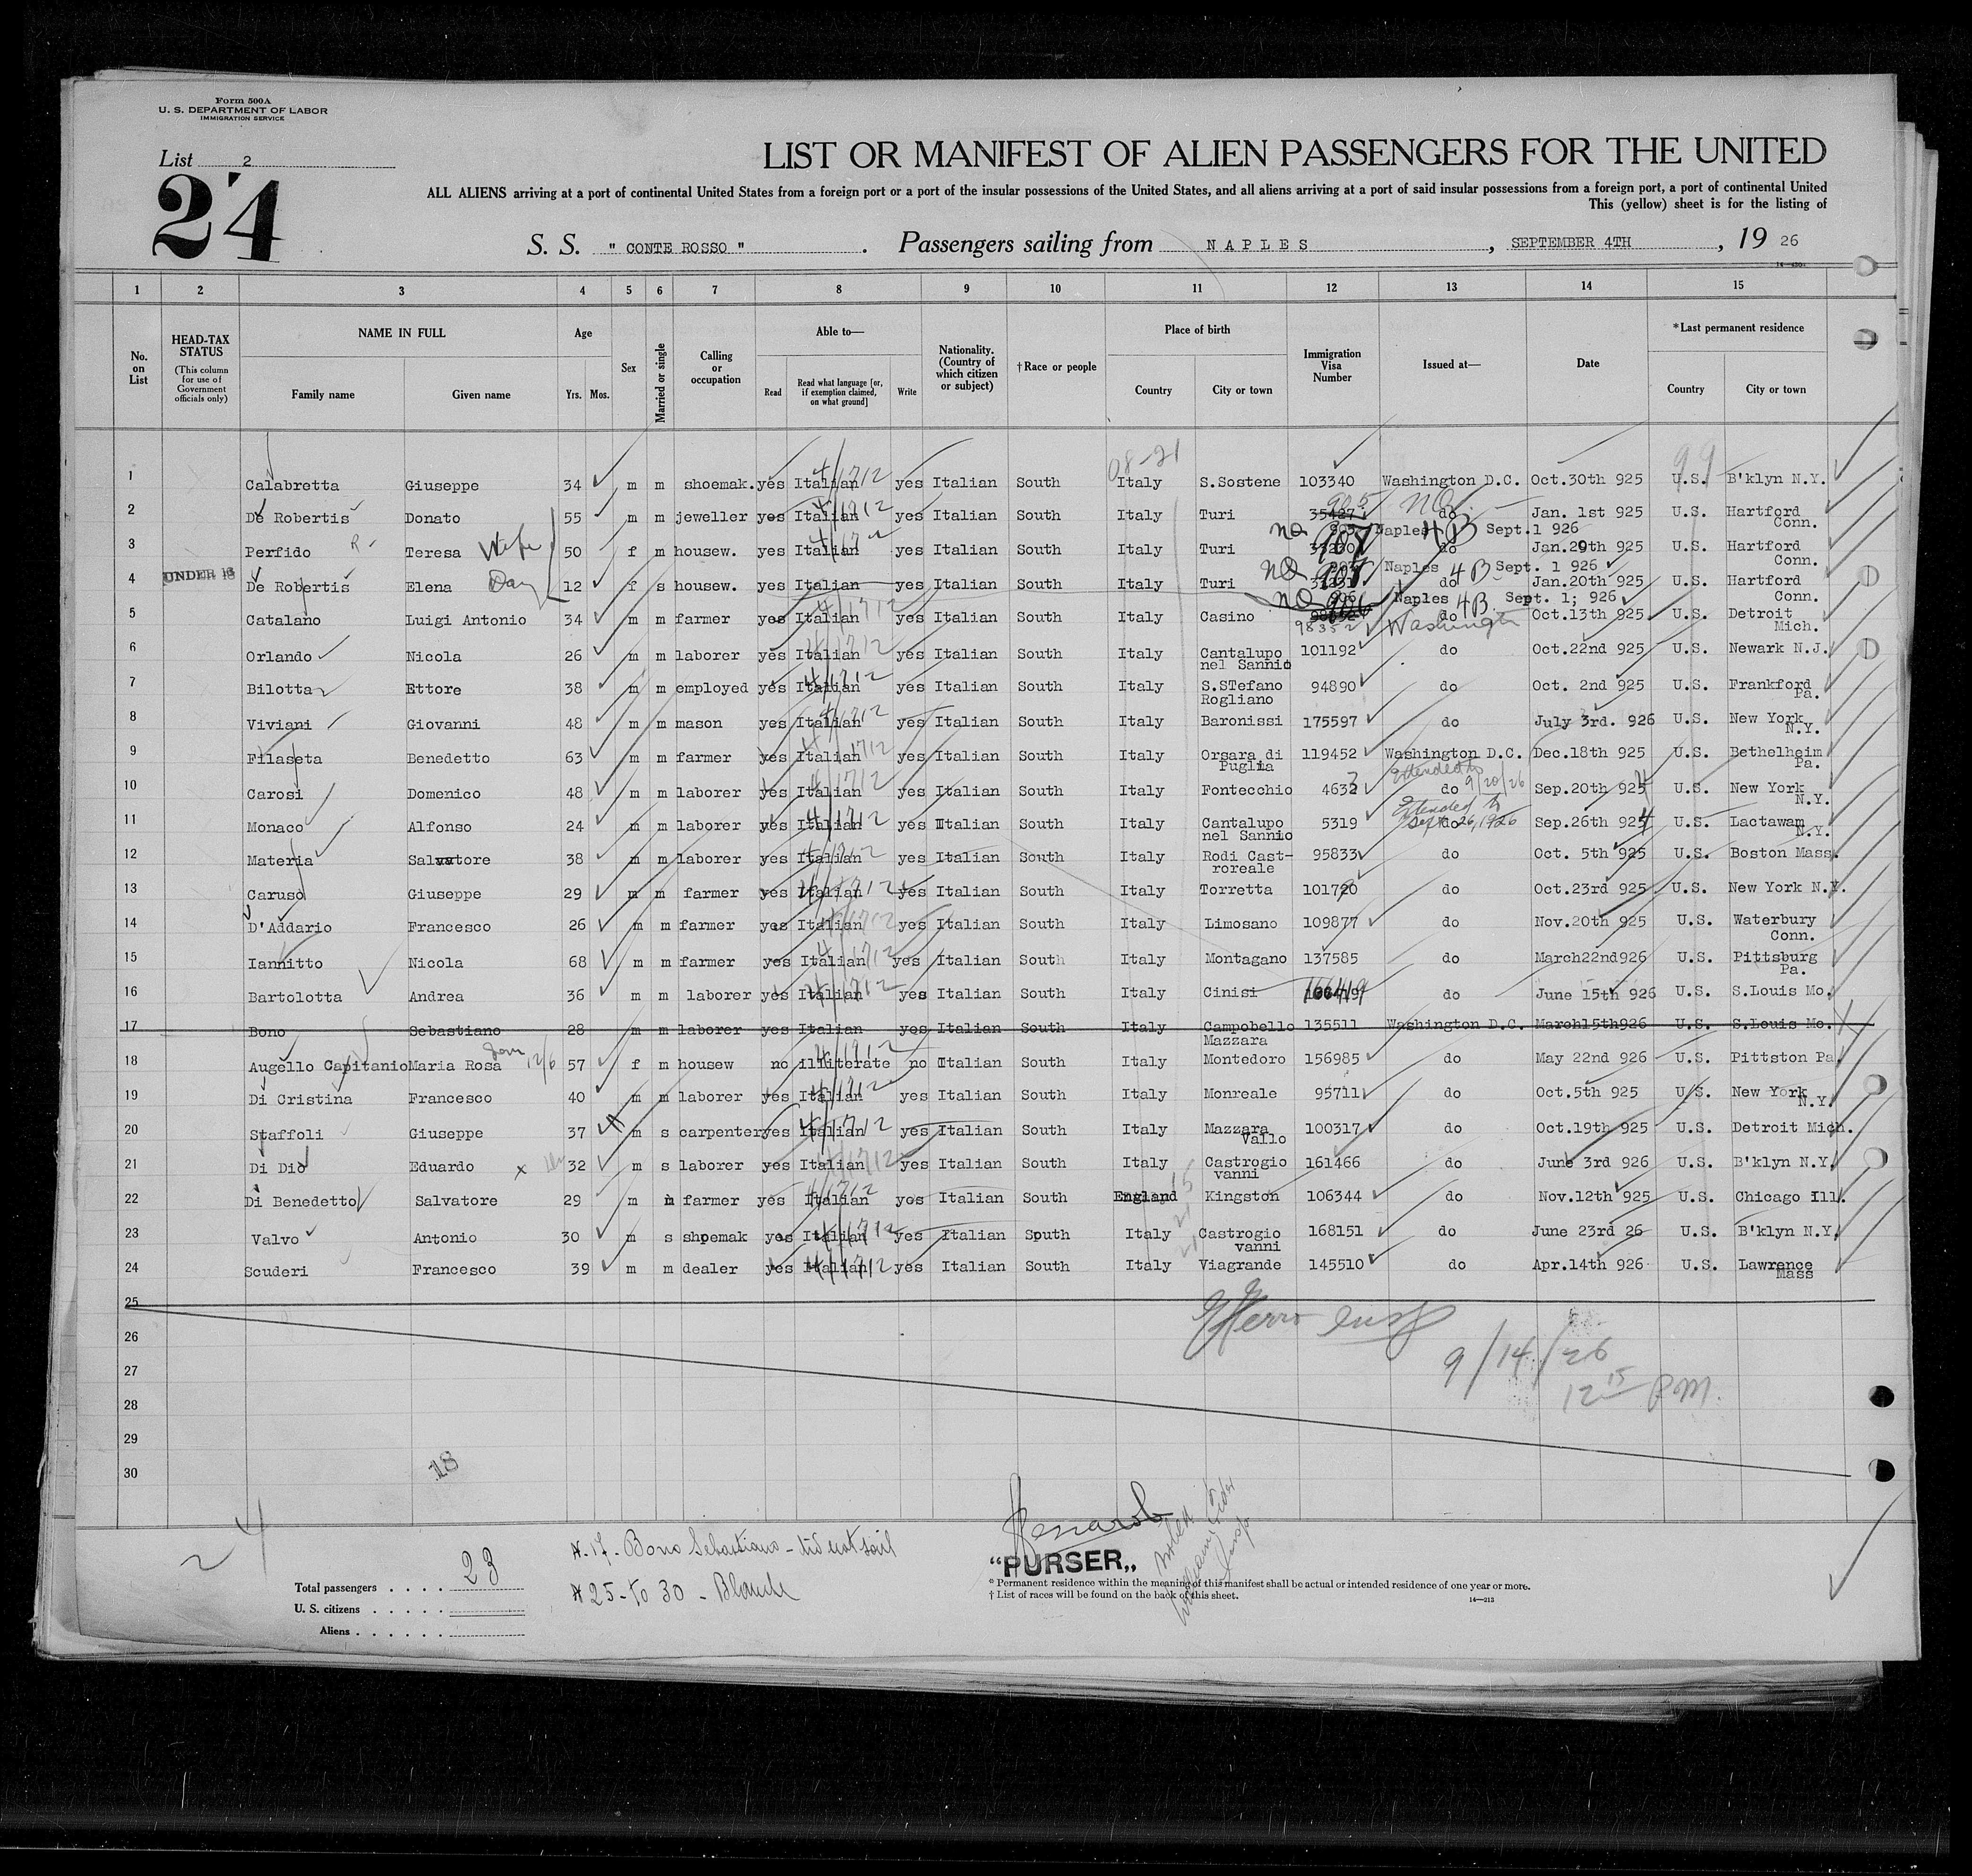 Form 500A
U. S. DEPARTMENT OF LABOR
IMMIGRATION SERVICE
List 2
24
LIST OR MANIFEST OF ALIEN PASSENGERS FOR THE UNITED
ALL ALIENS arriving at a port of continental United States from a foreign port or a port of the insular possessions of the United States, and all aliens arriving at a port of said insular possessions from a foreign port, a port of continental United
This (yellow) sheet is for the listing of
S. S. " CONTE ROSSO ". Passengers sailing from NAPLES, SEPTEMBER 4TH, 19 26
1 2 3 4 5 6 7 8 9 10 11 12 13 14 15
No. on List
HEAD-TAX STATUS (This column for use of Government officials only)
NAME IN FULL Family name Given name
Age Yrs. Mos.
Sex
Married or single
Calling or occupation
Able to— Read Read what language [or, if exemption claimed, on what ground] Write
Nationality. (Country of which citizen or subject)
†Race or people
Place of birth Country City or town
Immigration Visa Number
Issued at—
Date
*Last permanent residence Country City or town
08-21 99
1 Calabretta Giuseppe 34 m m shoemak. yes Italian 4/1712 yes Italian South Italy S.Sostene 103340 Washington D.C. Oct.30th 925 U.S. B'klyn N.Y.
2 De Robertis Donato 55 m m jeweller yes Italian 4/1712 yes Italian South Italy Turi 35427 905 NQ do Jan. 1st 925 U.S. Hartford Conn.
NQ Naples 4B Sept.1 926
3 Perfido Teresa Wife 50 f m housew. yes Italian yes Italian South Italy Turi 907 do Jan.20th 925 U.S. Hartford Conn.
NQ Naples 4B Sept. 1 926
4 UNDER 16 De Robertis Elena Dau 12 f s housew. yes Italian yes Italian South Italy Turi do Jan.20th 925 U.S. Hartford Conn.
NQ 906 Naples 4B Sept. 1; 926
5 Catalano Luigi Antonio 34 m m farmer yes Italian 4/1712 yes Italian South Italy Casino 98352 do Washington Oct.13th 925 U.S. Detroit Mich.
6 Orlando Nicola 26 m m laborer yes Italian 4/1712 yes Italian South Italy Cantalupo nel Sannio 101192 do Oct.22nd 925 U.S. Newark N.J.
7 Bilotta Ettore 38 m m employed yes Italian 4/1712 yes Italian South Italy S.STefano Rogliano 94890 do Oct. 2nd 925 U.S. Frankford Pa.
8 Viviani Giovanni 48 m m mason yes Italian 4/1712 yes Italian South Italy Baronissi 175597 do July 3rd. 926 U.S. New York N.Y.
9 Filaseta Benedetto 63 m m farmer yes Italian 4/1712 yes Italian South Italy Orsara di Puglia 119452 Washington D.C. Dec.18th 925 U.S. Bethelheim Pa.
10 Carosi Domenico 48 m m laborer yes Italian 4/1712 yes Italian South Italy Fontecchio 4632 do Extended to 9/20/26 Sep.20th 924 U.S. New York N.Y.
11 Monaco Alfonso 24 m m laborer yes Italian 4/1712 yes Italian South Italy Cantalupo nel Sannio 5319 do Extended to Sept 26, 1926 Sep.26th 924 U.S. Lactawam N.Y.
12 Materia Salvatore 38 m m laborer yes Italian 4/1712 yes Italian South Italy Rodi Cast-roreale 95833 do Oct. 5th 925 U.S. Boston Mass.
13 Caruso Giuseppe 29 m m farmer yes Italian 4/1712 yes Italian South Italy Torretta 101790 do Oct.23rd 925 U.S. New York N.Y.
14 D'Addario Francesco 26 m m farmer yes Italian 4/1712 yes Italian South Italy Limosano 109877 do Nov.20th 925 U.S. Waterbury Conn.
15 Iannitto Nicola 68 m m farmer yes Italian 4/1712 yes Italian South Italy Montagano 137585 do March22nd926 U.S. Pittsburg Pa.
16 Bartolotta Andrea 36 m m laborer yes Italian 4/1712 yes Italian South Italy Cinisi 166419 do June 15th 926 U.S. S.Louis Mo.
17 Bono Sebastiano 28 m m laborer yes Italian yes Italian South Italy Campobello Mazzara 135511 Washington D.C. March15th926 U.S. S.Louis Mo.
18 Augello Capitanio Maria Rosa 12/6 57 f m housew no illiterate 4/1912 no Italian South Italy Montedoro 156985 do May 22nd 926 U.S. Pittston Pa.
19 Di Cristina Francesco 40 m m laborer yes Italian 4/1712 yes Italian South Italy Monreale 95711 do Oct.5th 925 U.S. New York N.Y.
20 Staffoli Giuseppe 37 m s carpenter yes Italian 4/1712 yes Italian South Italy Mazzara Vallo 100317 do Oct.19th 925 U.S. Detroit Mich.
21 Di Dio Eduardo x 32 m s laborer yes Italian 4/1712 yes Italian South Italy Castrogio vanni 161466 do June 3rd 926 U.S. B'klyn N.Y.
22 Di Benedetto Salvatore 29 m m farmer yes Italian 4/1712 yes Italian South England 15 Kingston 106344 do Nov.12th 925 U.S. Chicago Ill.
23 Valvo Antonio 30 m s shoemak yes Italian 4/1712 yes Italian South Italy Castrogio vanni 168151 do June 23rd 26 U.S. B'klyn N.Y.
24 Scuderi Francesco 39 m m dealer yes Italian 4/1712 yes Italian South Italy Viagrande 145510 do Apr.14th 926 U.S. Lawrence Mass
25
26
27
28
29
30
9/14/26
12 15 P.M.
18
24
Total passengers . . . . 23
U. S. citizens . . . . .
Aliens . . . . . .
N. 17 - Bono Sebastiano - did not sail
N 25 - to 30 - Blanck
"PURSER„
* Permanent residence within the meaning of this manifest shall be actual or intended residence of one year or more.
† List of races will be found on the back of this sheet.
14—213